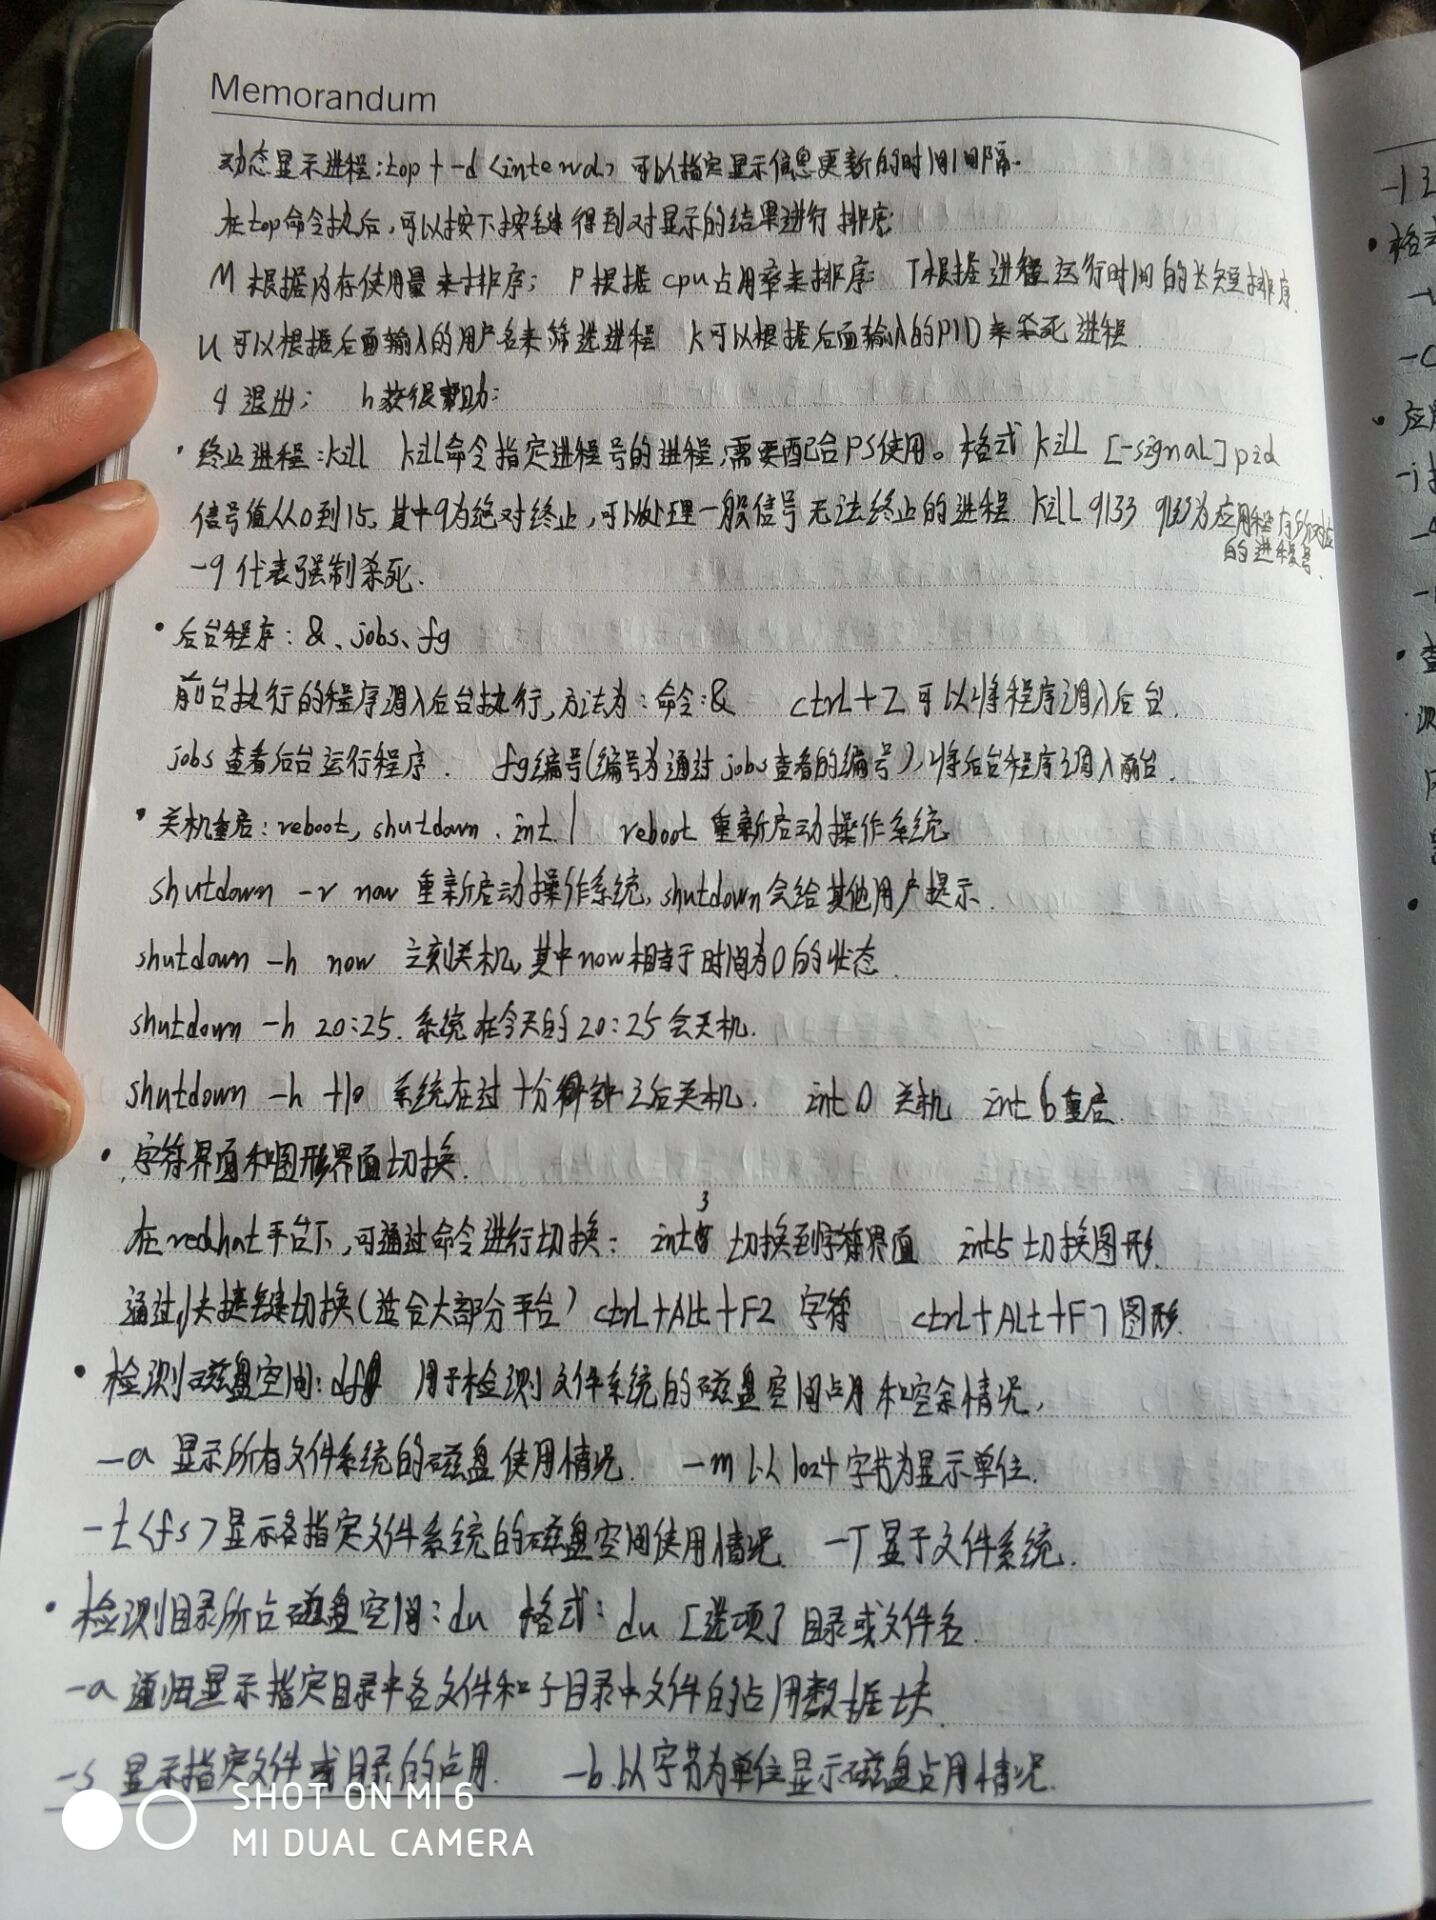 Memorandum
动态显示进程:top + -d <interval> 可以指定显示信息更新的时间间隔.
在top命令执后,可以按下按键得到对显示的结果进行排序:
M 根据内存使用量来排序; P 根据 cpu 占用率来排序; T根据进程运行时间的长短排序.
u 可以根据后面输入的用户名来筛选进程 k可以根据后面输入的PID来杀死进程
q 退出; h 获得帮助:
• 终止进程:kill kill命令指定进程号的进程,需要配合PS使用。格式 kill [-signal] pid
信号值从0到15,其中9为绝对终止,可以处理一般信号无法终止的进程 kill 9133 9133为应用程序所对应
的进程号.
-9 代表强制杀死.
• 后台程序:&、jobs、fg
前台执行的程序调入后台执行,方法为:命令:& ctrl+Z 可以将程序调入后台.
jobs 查看后台运行程序. fg编号(编号为通过jobs查看的编号),将后台程序调入前台.
• 关机重启:reboot, shutdown. int. reboot 重新启动操作系统
shutdown -r now 重新启动操作系统, shutdown会给其他用户提示.
shutdown -h now 立刻关机,其中now相当于时间为0的状态.
shutdown -h 20:25. 系统在今天的20:25会关机.
shutdown -h +10 系统在过十分钟之后关机. int 0 关机 int 6重启.
• 字符界面和图形界面切换.
在redhat平台下,可通过命令进行切换: int3 切换到字符界面 int5 切换图形.
通过快捷键切换(适合大部分平台) ctrl+Alt+F2 字符 ctrl+Alt+F7 图形.
• 检测磁盘空间:df 用于检测文件系统的磁盘空间占用和空余情况,
-a 显示所有文件系统的磁盘使用情况. -m 以1024字节为显示单位.
-t<fs>显示各指定文件系统的磁盘空间使用情况. -T 显于文件系统.
• 检测目录所占磁盘空间:du 格式:du [选项] 目录或文件名.
-a 递归显示指定目录中各文件和子目录中文件的占用数据块.
-s 显示指定文件或目录的占用. -b.以字节为单位显示磁盘占用情况.
SHOT ON MI 6
MI DUAL CAMERA